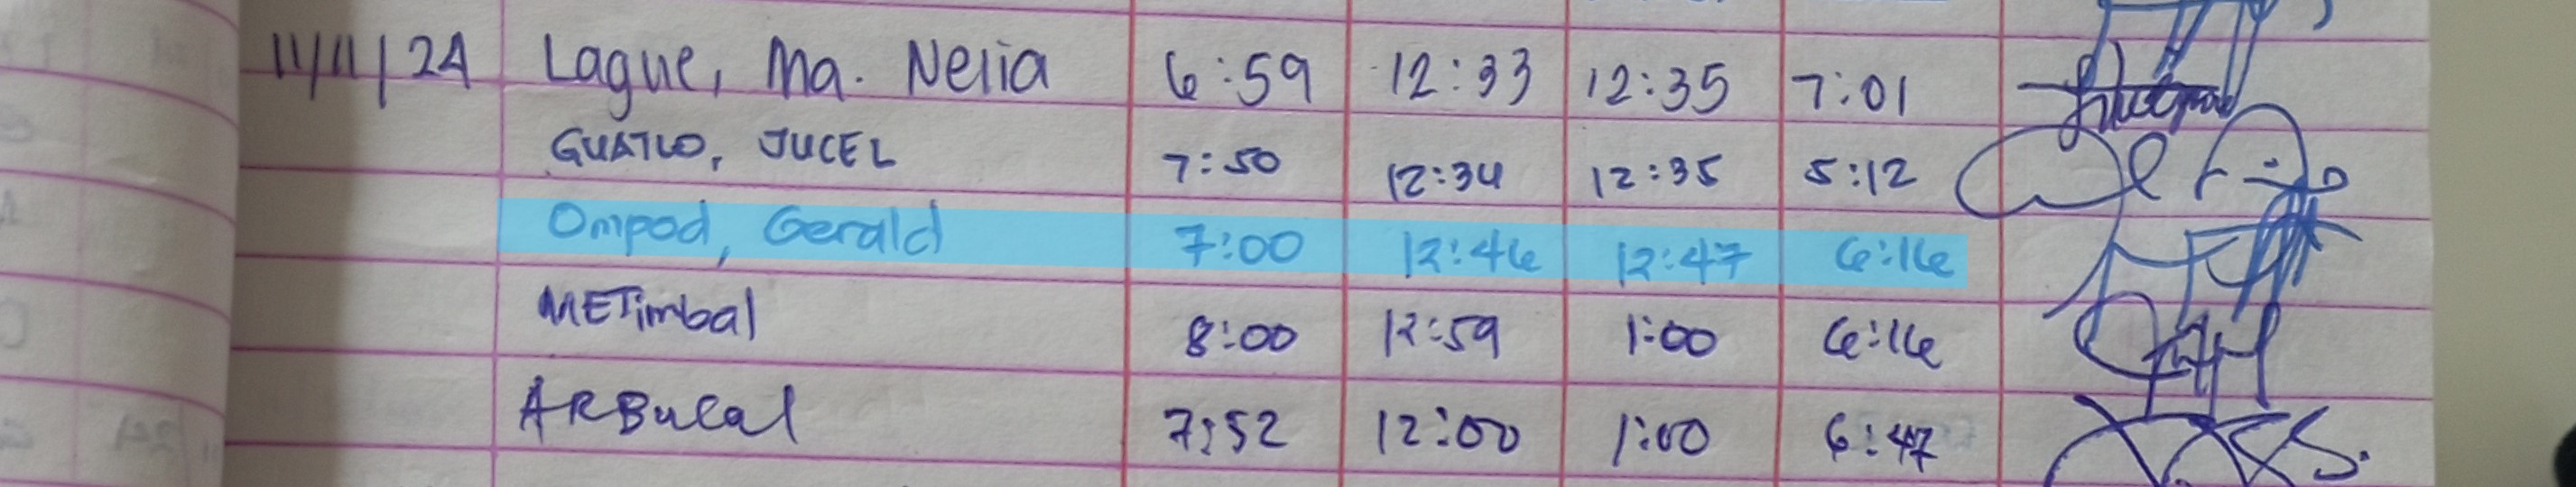 11/11/24 Lague, Ma. Nelia 6:59 12:33 12:35 7:01
GUATLO, JUCEL 7:50 12:34 12:35 5:12
Ompod, Gerald 7:00 12:46 12:47 6:16
METimbal 8:00 12:59 1:00 6:16
ARBucal 7:52 12:00 1:00 6:47